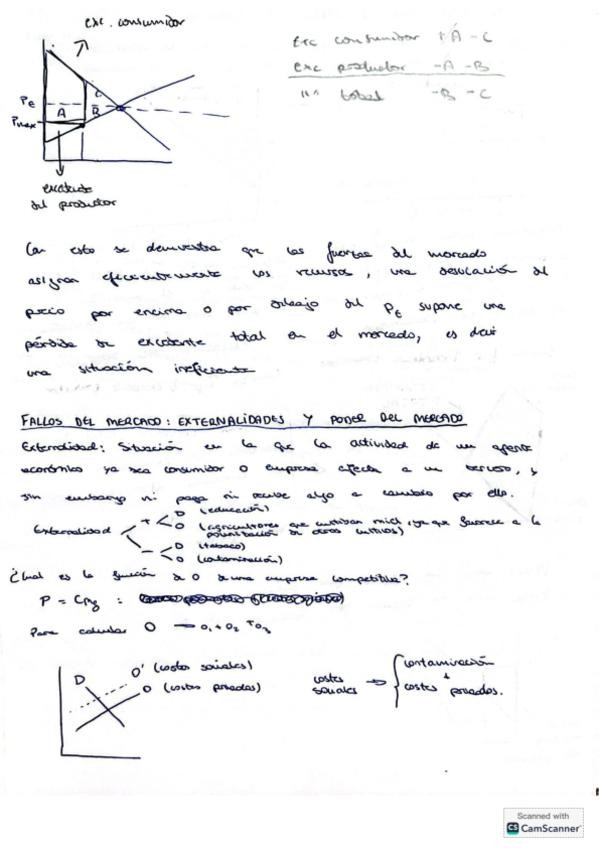 exc. consumidor
exc consumidor + A - C
exc productor - A - B
"" total - B - C
C
Pe
A
B
Pmax
excedente
del productor
Con esto se demuestra que las fuerzas del mercado
asignan eficientemente los recursos, una desviación del
precio por encima o por debajo del PE supone una
pérdida de excedente total en el mercado, es decir
una situación ineficiente
FALLOS DEL MERCADO: EXTERNALIDADES Y PODER DEL MERCADO
Externalidad: Situación en la que la actividad de un agente
económico ya sea consumidor o empresa afecta a un tercero, y
sin embargo ni paga ni recibe algo a cambio por ello.
D (educación)
Externalidad + O (agricultores que cultivan miel, ya que favorece a la
polinización de otros cultivos)
- D (tabaco)
O (contaminación)
¿Cual es la función de O de una empresa competitiva?
P = CMg :
Para calcular O → O1 + O2 + O3
D O' (costes sociales)
O (costes privados)
costes sociales → contaminación
+
costes privados.
Scanned with
CS CamScanner